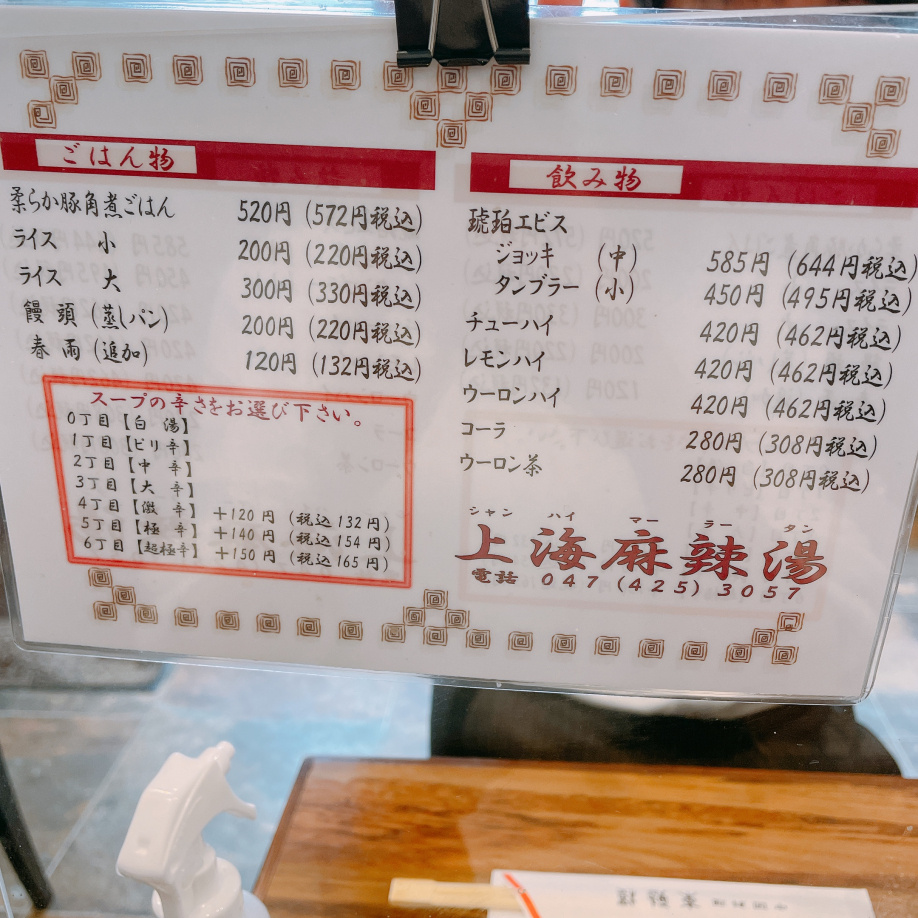 ごはん物
柔らか豚角煮ごはん 520円 (572円税込)
ライス 小 200円 (220円税込)
ライス 大 300円 (330円税込)
饅頭 (蒸しパン) 200円 (220円税込)
春雨 (追加) 120円 (132円税込)
スープの辛さをお選び下さい。
0丁目【白 湯】
1丁目【ピリ辛】
2丁目【中 辛】
3丁目【大 辛】
4丁目【激 辛】 +120円 (税込132円)
5丁目【極 辛】 +140円 (税込154円)
6丁目【超極辛】 +150円 (税込165円)
飲み物
琥珀エビス
ジョッキ (中) 585円 (644円税込)
タンブラー (小) 450円 (495円税込)
チューハイ 420円 (462円税込)
レモンハイ 420円 (462円税込)
ウーロンハイ 420円 (462円税込)
コーラ 280円 (308円税込)
ウーロン茶 280円 (308円税込)
シャン ハイ マー ラー タン
上海麻辣湯
電話 047(425)3057